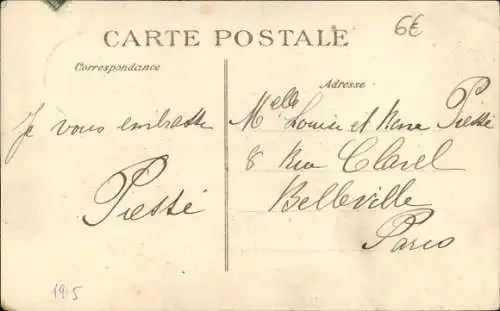 CARTE POSTALE
6€
Correspondance
Adresse
Je vous embrasse
Piessé
Melle Louise et Piessé
8 Rue Clavel
Belleville
Paris
1915